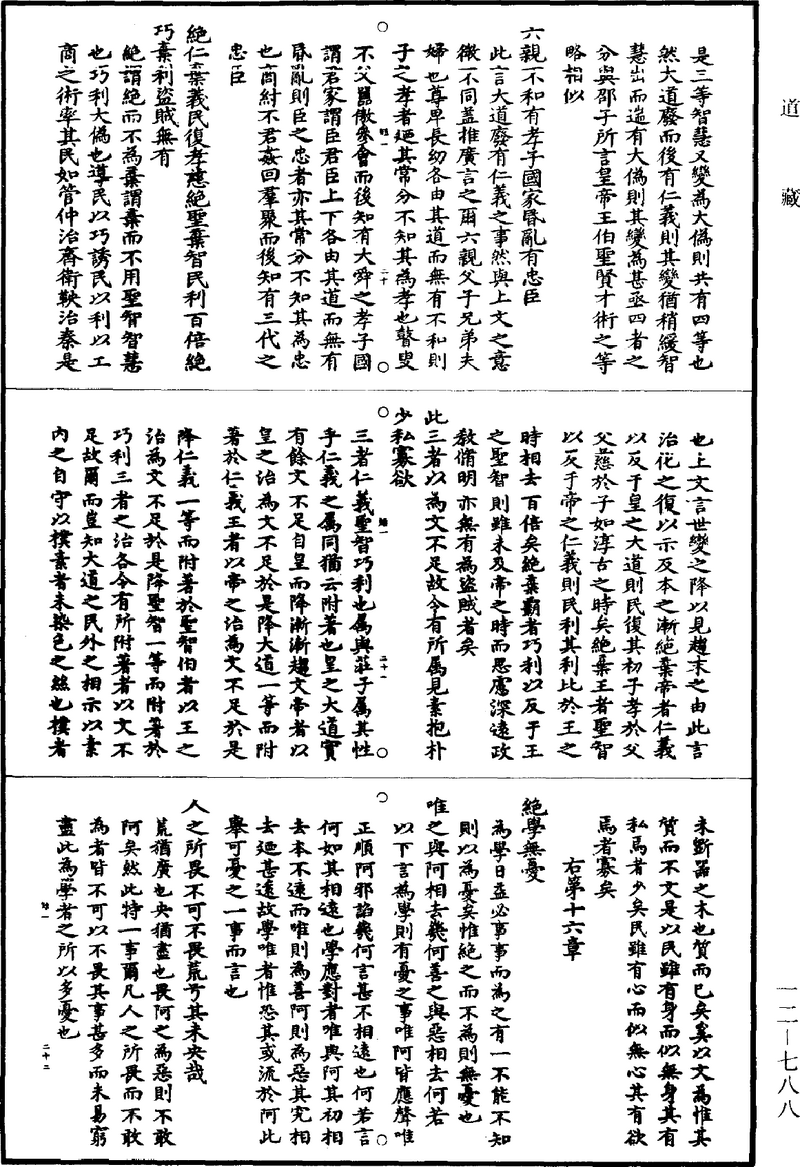 道藏
是三等智慧又變為大偽則共有四等也
然大道廢而後有仁義則其變猶稍緩智
慧出而遄有大偽則其變為甚亟四者之
分與邵子所言皇帝王伯聖賢才術之等
略相似
六親不和有孝子國家昬亂有忠臣
此言大道廢有仁義之事然與上文之意
微不同蓋推廣言之爾六親父子兄弟夫
婦也尊卑長幼各由其道而無有不和則
子之孝者廼其常分不知其為孝也瞽叟
不父嚚傲參會而後知有大舜之孝子國
謂君家謂臣君臣上下各由其道而無有
昬亂則臣之忠者亦其常分不知其為忠
也商紂不君姦回羣聚而後知有三代之
忠臣
絕仁棄義民復孝慈絕聖棄智民利百倍絕
巧棄利盜賊無有
絕謂絕而不為棄謂棄而不用聖智智慧
也巧利大偽也導民以巧誘民以利以工
商之術率其民如管仲治齊衛鞅治秦是
也上文言世變之降以見趨末之由此言
治化之復以示反本之漸絕棄帝者仁義
以反于皇之大道則民復其初子孝於父
父慈於子如淳古之時矣絕棄王者聖智
以反于帝之仁義則民利其利比於王之
時相去百倍矣絕棄霸者巧利以反于王
之聖智則雖未及帝之時而思慮深遠政
教脩明亦無有為盜賊者矣
此三者以為文不足故令有所屬見素抱朴
少私寡欲
三者仁義聖智巧利也屬與莊子屬其性
乎仁義之屬同猶云附著也皇之大道實
有餘文不足自皇而降漸漸趨文帝者以
皇之治為文不足於是降大道一等而附
著於仁義王者以帝之治為文不足於是
降仁義一等而附著於聖智伯者以王之
治為文不足於是降聖智一等而附著於
巧利三者之治各令有所附著者以文不
足故爾而豈知大道之民外之相示以素
內之自守以樸素者未染色之絲也樸者
未斲器之木也質而已矣奚以文為惟其
質而不文是以民雖有身而似無身其有
私焉者少矣民雖有心而似無心其有欲
焉者寡矣
右第十六章
絕學無憂
為學日益必事事而為之有一不能不知
則以為憂矣惟絕之而不為則無憂也
唯之與阿相去幾何善之與惡相去何若
以下言為學則有憂之事唯阿皆應聲唯
正順阿邪諂幾何言甚不相遠也何若言
何如其相遠也學應對者唯與阿其初相
去本不遠而唯則為善阿則為惡其究相
去廼甚遠故學唯者惟恐其或流於阿此
舉可憂之一事而言也
人之所畏不可不畏荒兮其未央哉
荒猶廣也央猶盡也畏阿之為惡則不敢
阿矣然此特一事爾凡人之所畏而不敢
為者皆不可以不畏其事甚多而未易窮
盡此為學者之所以多憂也
二十
二十一
二十二
一二—七八八